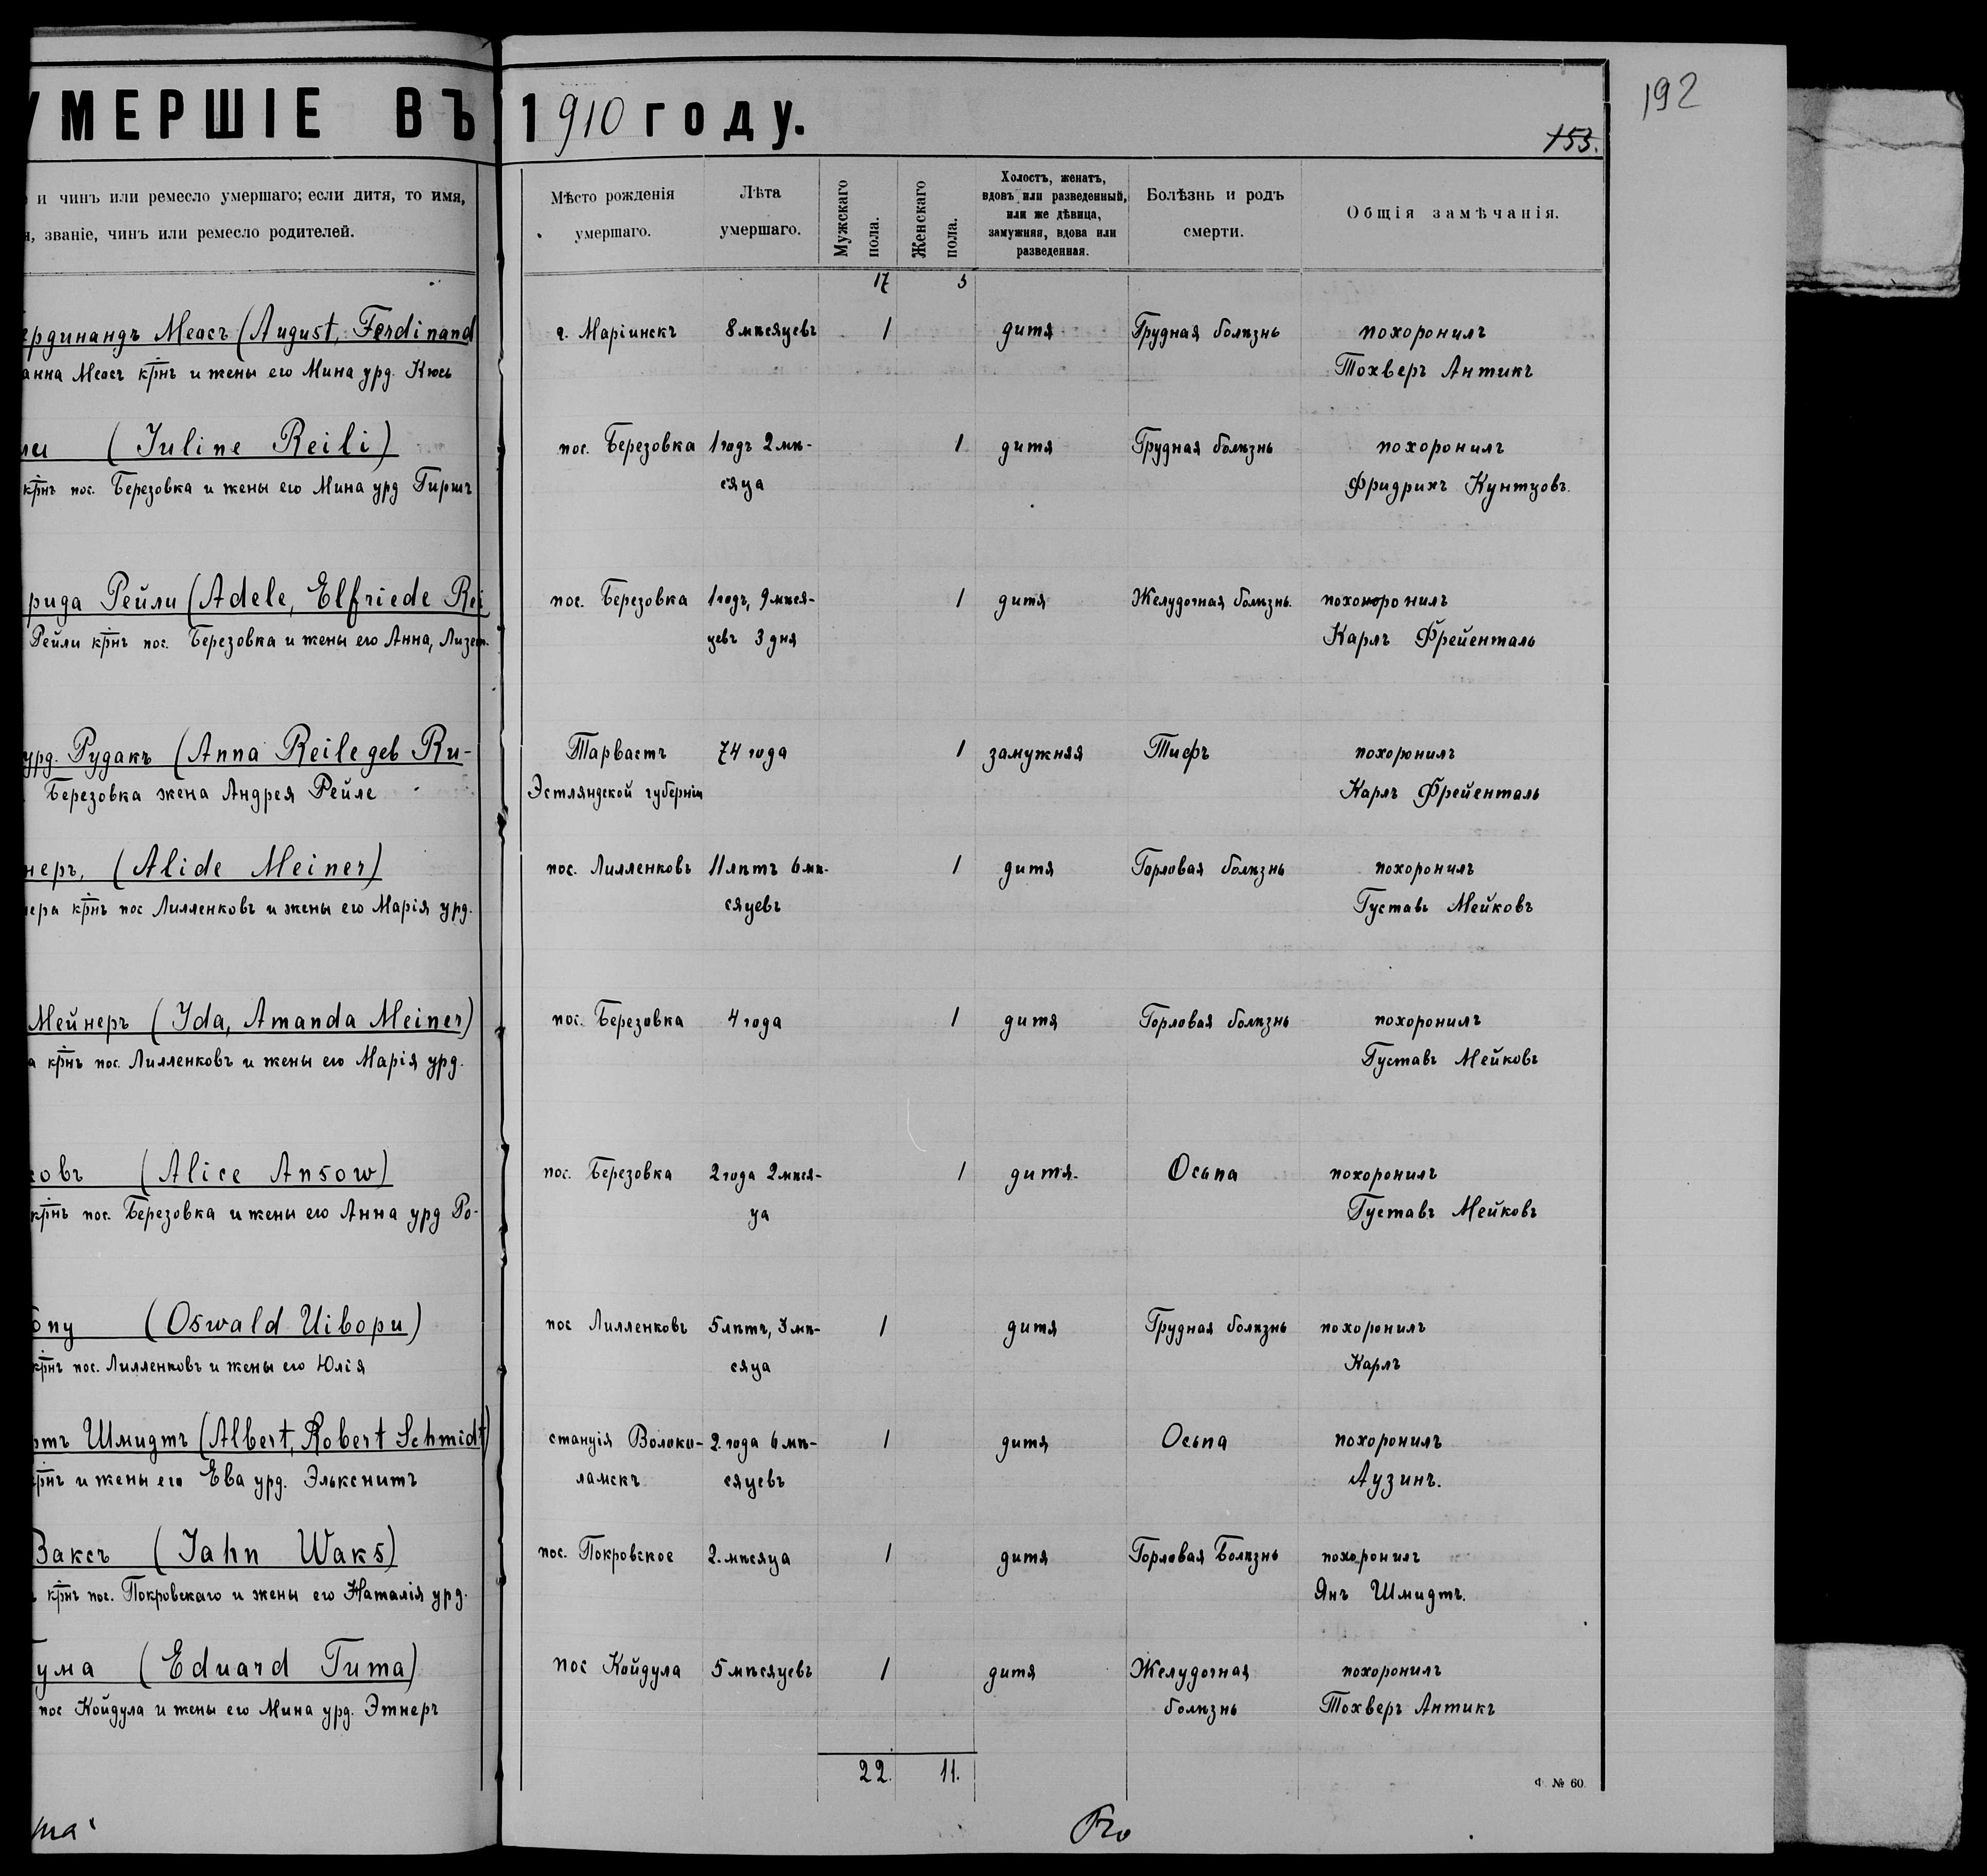 УМЕРШІЕ ВЪ 1910 году.
192
153.
и чинъ или ремесло умершаго; если дитя, то имя,
званіе, чинъ или ремесло родителей.
Мѣсто рожденія
умершаго.
Лѣта
умершаго.
Мужскаго
пола.
Женскаго
пола.
Холостъ, женатъ,
вдовъ или разведенный,
или же дѣвица,
замужняя, вдова или
разведенная.
Болѣзнь и родъ
смерти.
Общія замѣчанія.
17 5
ердинандъ Меасъ (August, Ferdinand г. Маріинскъ 8 мѣсяцевъ 1 дитя Грудная болѣзнь похоронилъ
анна Меасъ крнъ и жены его Мина урд. Кюсь Тохверъ Антикъ
ли (Juline Reili) пос. Березовка 1 годъ 2 мѣ- 1 дитя Грудная болѣзнь похоронилъ
крнъ пос. Березовка и жены его Мина урд Гиршъ сяца Фридрихъ Кунтцовъ.
рида Рейли (Adele, Elfriede Rei пос. Березовка 1 годъ, 9 мѣся- 1 дитя Желудочная болѣзнь. похоронилъ
Рейли крнъ пос. Березовка и жены его Анна, Лизет. цевъ 3 дня Карлъ Фрейенталь
урд. Рудакъ (Anna Reile geb Ru- Тарвастъ 74 года 1 замужняя Тифъ похоронилъ
Березовка жена Андрея Рейле Эстляндской губерніи Карлъ Фрейенталь
неръ, (Alide Meiner) пос. Лилленковъ 11 лѣтъ 6 мѣ- 1 дитя Горловая болѣзнь похоронилъ
нера крнъ пос Лилленковъ и жены его Марія урд. сяцевъ Густавъ Мейковъ
Мейнеръ (Ida, Amanda Meiner) пос. Березовка 4 года 1 дитя Горловая болѣзнь похоронилъ
а крнъ пос. Лилленковъ и жены его Марія урд. Густавъ Мейковъ
совъ (Alice Ansow) пос. Березовка 2 года 2 мѣся- 1 дитя. Осьпа похоронилъ
крнъ пос. Березовка и жены его Анна урд Ро- ца Густавъ Мейковъ
опу (Oswald Uibopu) пос Лилленковъ 5 лѣтъ, 3 мѣ- 1 дитя Грудная болѣзнь похоронилъ
крнъ пос. Лилленковъ и жены его Юлія сяца Карлъ
ртъ Шмидтъ (Albert, Robert Schmidt) станція Волоко- 2. года 6 мѣ- 1 дитя Осьпа похоронилъ
крнъ и жены его Ева урд. Элькснитъ ламскъ сяцевъ Аузинъ.
Ваксъ (Jahn Waks) пос. Покровское 2. мѣсяца 1 дитя Горловая Болѣзнь похоронилъ
крнъ пос. Покровскаго и жены его Наталія урд. Янъ Шмидтъ.
Тума (Eduard Tuma) пос Койдула 5 мѣсяцевъ 1 дитя Желудочная похоронилъ
пос Койдула и жены его Мина урд. Этнеръ болѣзнь Тохверъ Антикъ
22. 11.
Ф. № 60.